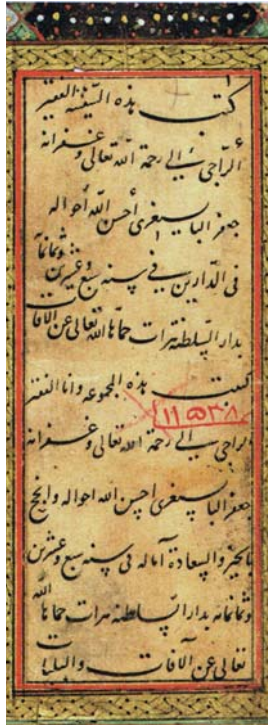 كتب هذه السفينة الفقير
الراجي إلى رحمة الله تعالى وغفرانه
جعفر البايسنغرى أحسن الله أحواله
فى الدارين في سنه سبع وعشرين وثمانمائه
بدار السلطنه هرات حماها الله تعالى عن الآفات
كتبت هذه المجموعه وانا الفقير
الراجي الى رحمة الله تعالى وغفرانه
جعفر البايسنغرى احسن الله احواله وانجح
بالخير والسعادة آماله فى سنه سبع وعشرين
وثمانمائه بدار السلطنه هرات حماها الله
تعالى عن الآفات والبليات